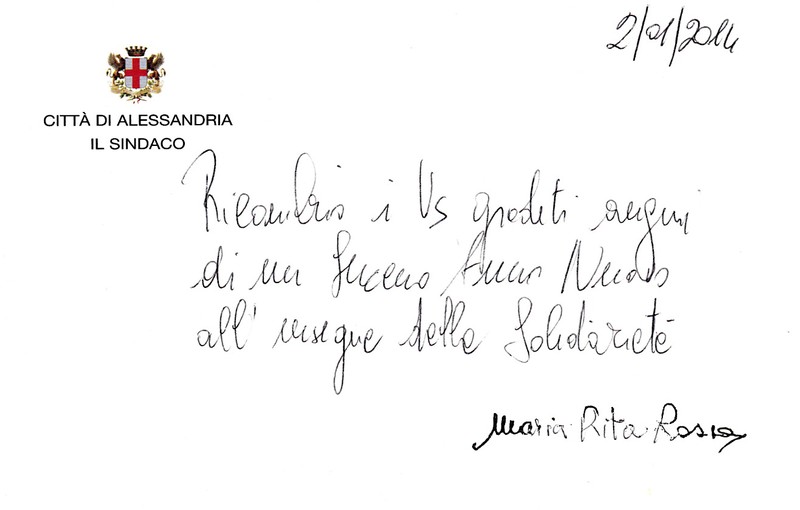 2/01/2014
CITTÀ DI ALESSANDRIA
IL SINDACO
Ricambio i Vs graditi auguri
di un Sereno Anno Nuovo
all'insegna della Solidarietà
Maria Rita Rossa